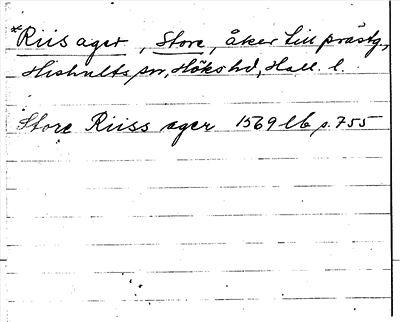 *Riis ager, Store, åker till prästg.,
Hishults sn, Höks hd, Hall. l.
Store Riiss ager 1569 lb p. 755